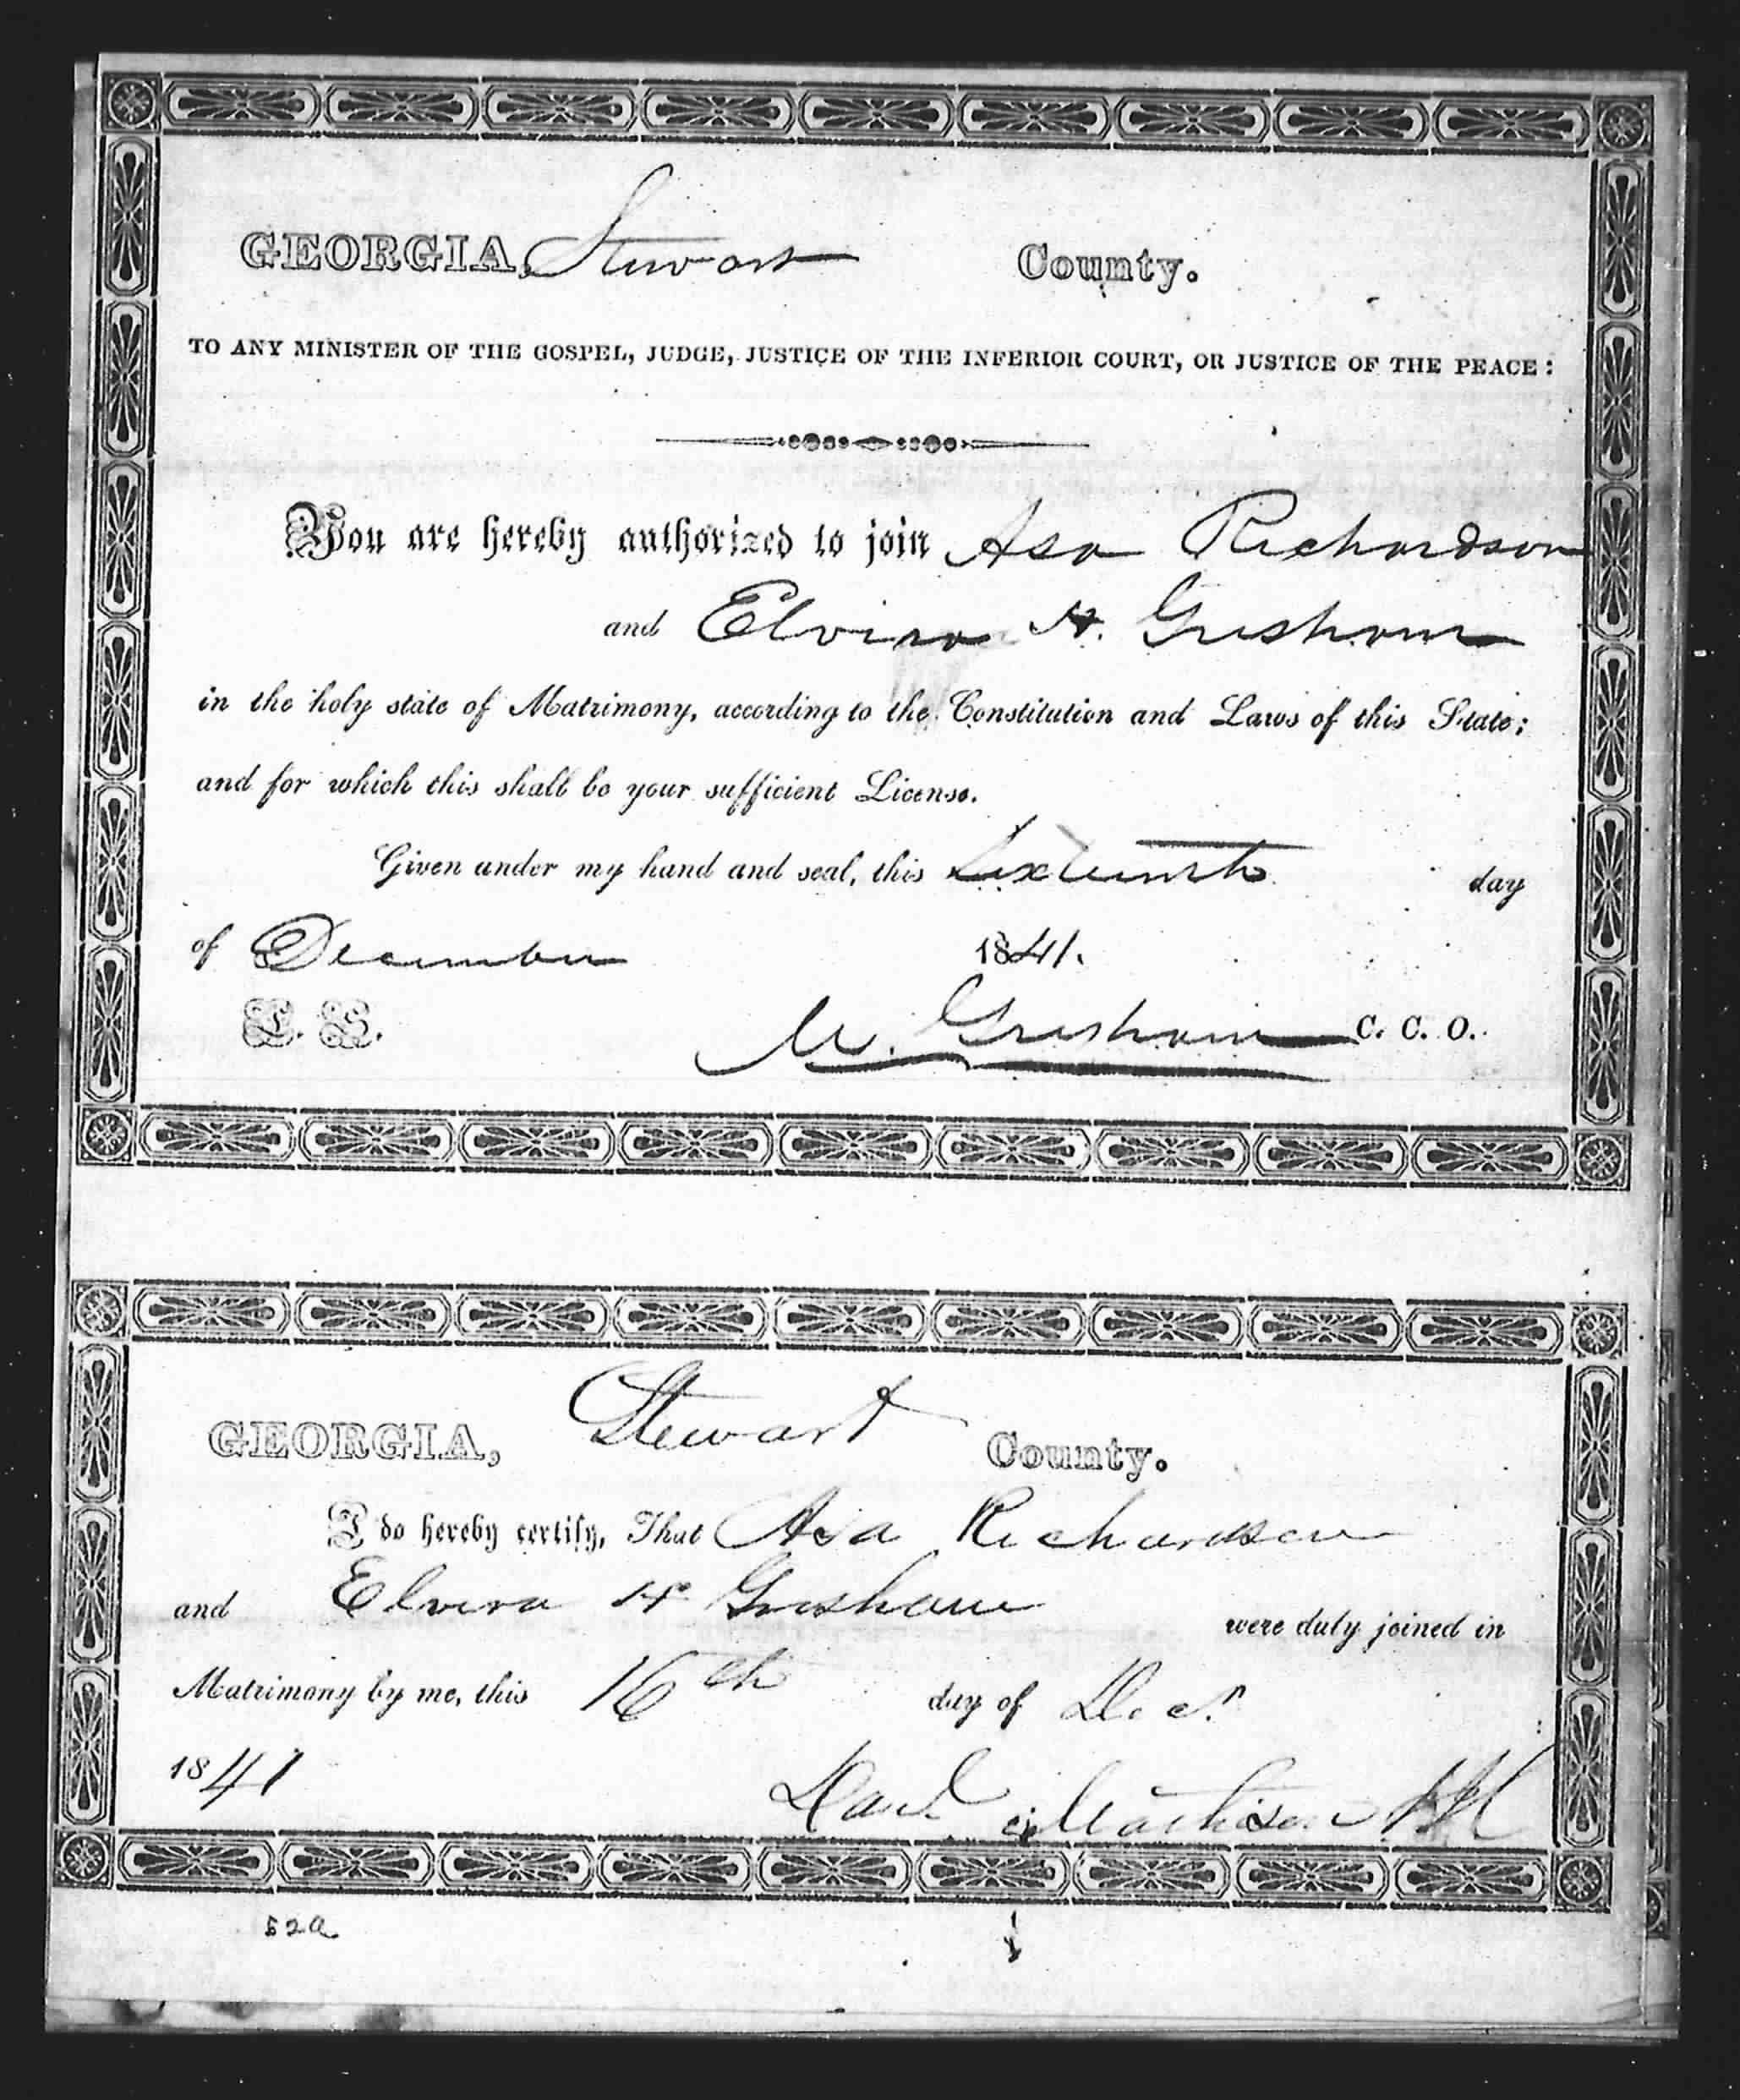 GEORGIA, Stewart County.
TO ANY MINISTER OF THE GOSPEL, JUDGE, JUSTICE OF THE INFERIOR COURT, OR JUSTICE OF THE PEACE:
You are hereby authorized to join Asa Richardson
and Elvira H. Gresham
in the holy state of Matrimony, according to the Constitution and Laws of this State;
and for which this shall be your sufficient License.
Given under my hand and seal, this Sixteenth day
of December 1841.
L. S. M. Gresham C. C. O.
GEORGIA, Stewart County.
I do hereby certify, That Asa Richardson
and Elvira H Gresham were duly joined in
Matrimony by me, this 16th day of Decr
1841
52a